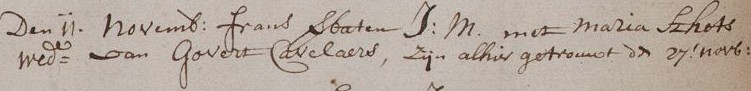 Den 11. Novemb: Frans Staten J: M. met Maria Schets
wede= van Govert Cavelaers, zijn alhier getrouwt dn 27! novb: